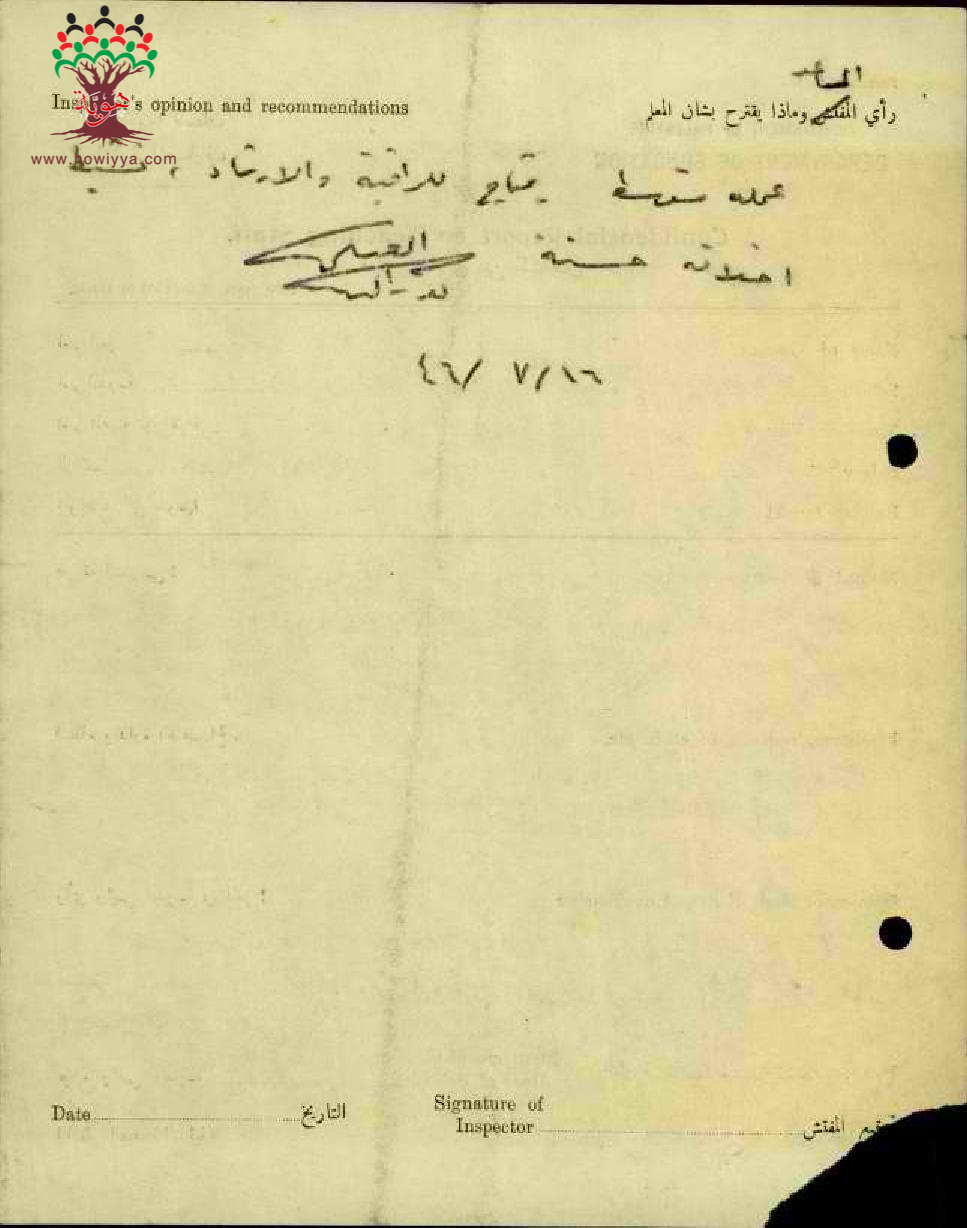 هوية
www.howiyya.com
المساعد
Inspector's opinion and recommendations رأي المفتش وماذا يقترح بشأن المعلم
عمله متوسط يحتاج للمراقبة والارشاد ، نشيط
اخلاقه حسنة
١٦/ ٧/ ٤٦
Date التاريخ
Signature of
Inspector المفتش